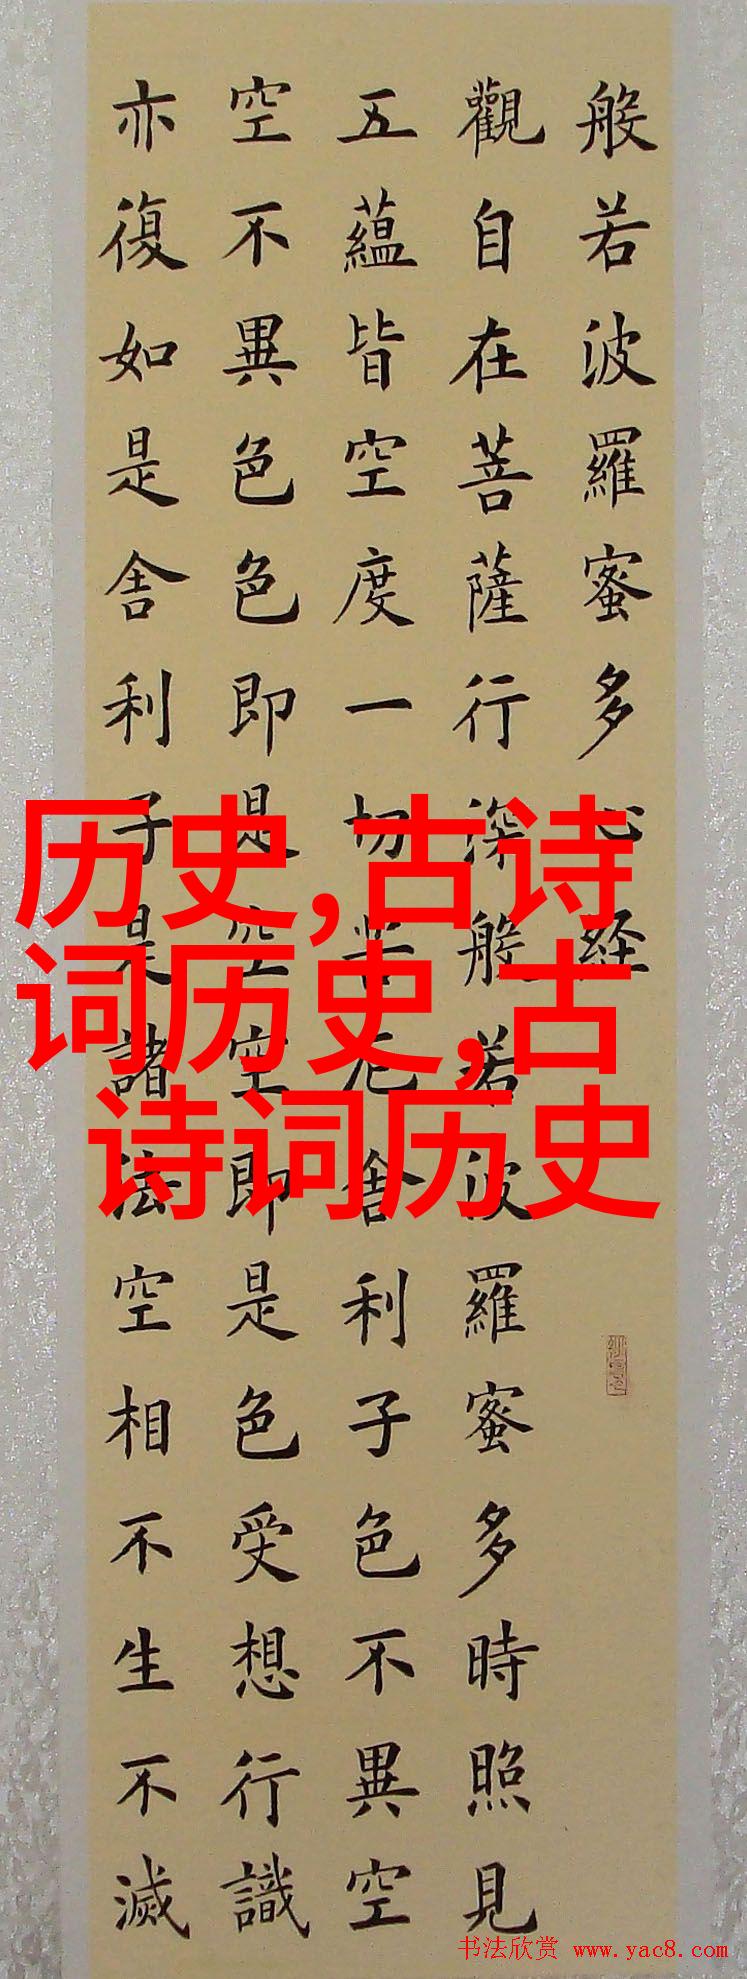 般若波羅蜜多心経
觀自在菩薩行深般若波羅蜜多時照見
五蘊皆空度一切苦厄舍利子色不異空
空不異色色即是空空即是色受想行識
亦復如是舍利子是諸法空相不生不滅
历史,古诗
词历史,古
诗词历史
书法欣赏 www.yac8.com